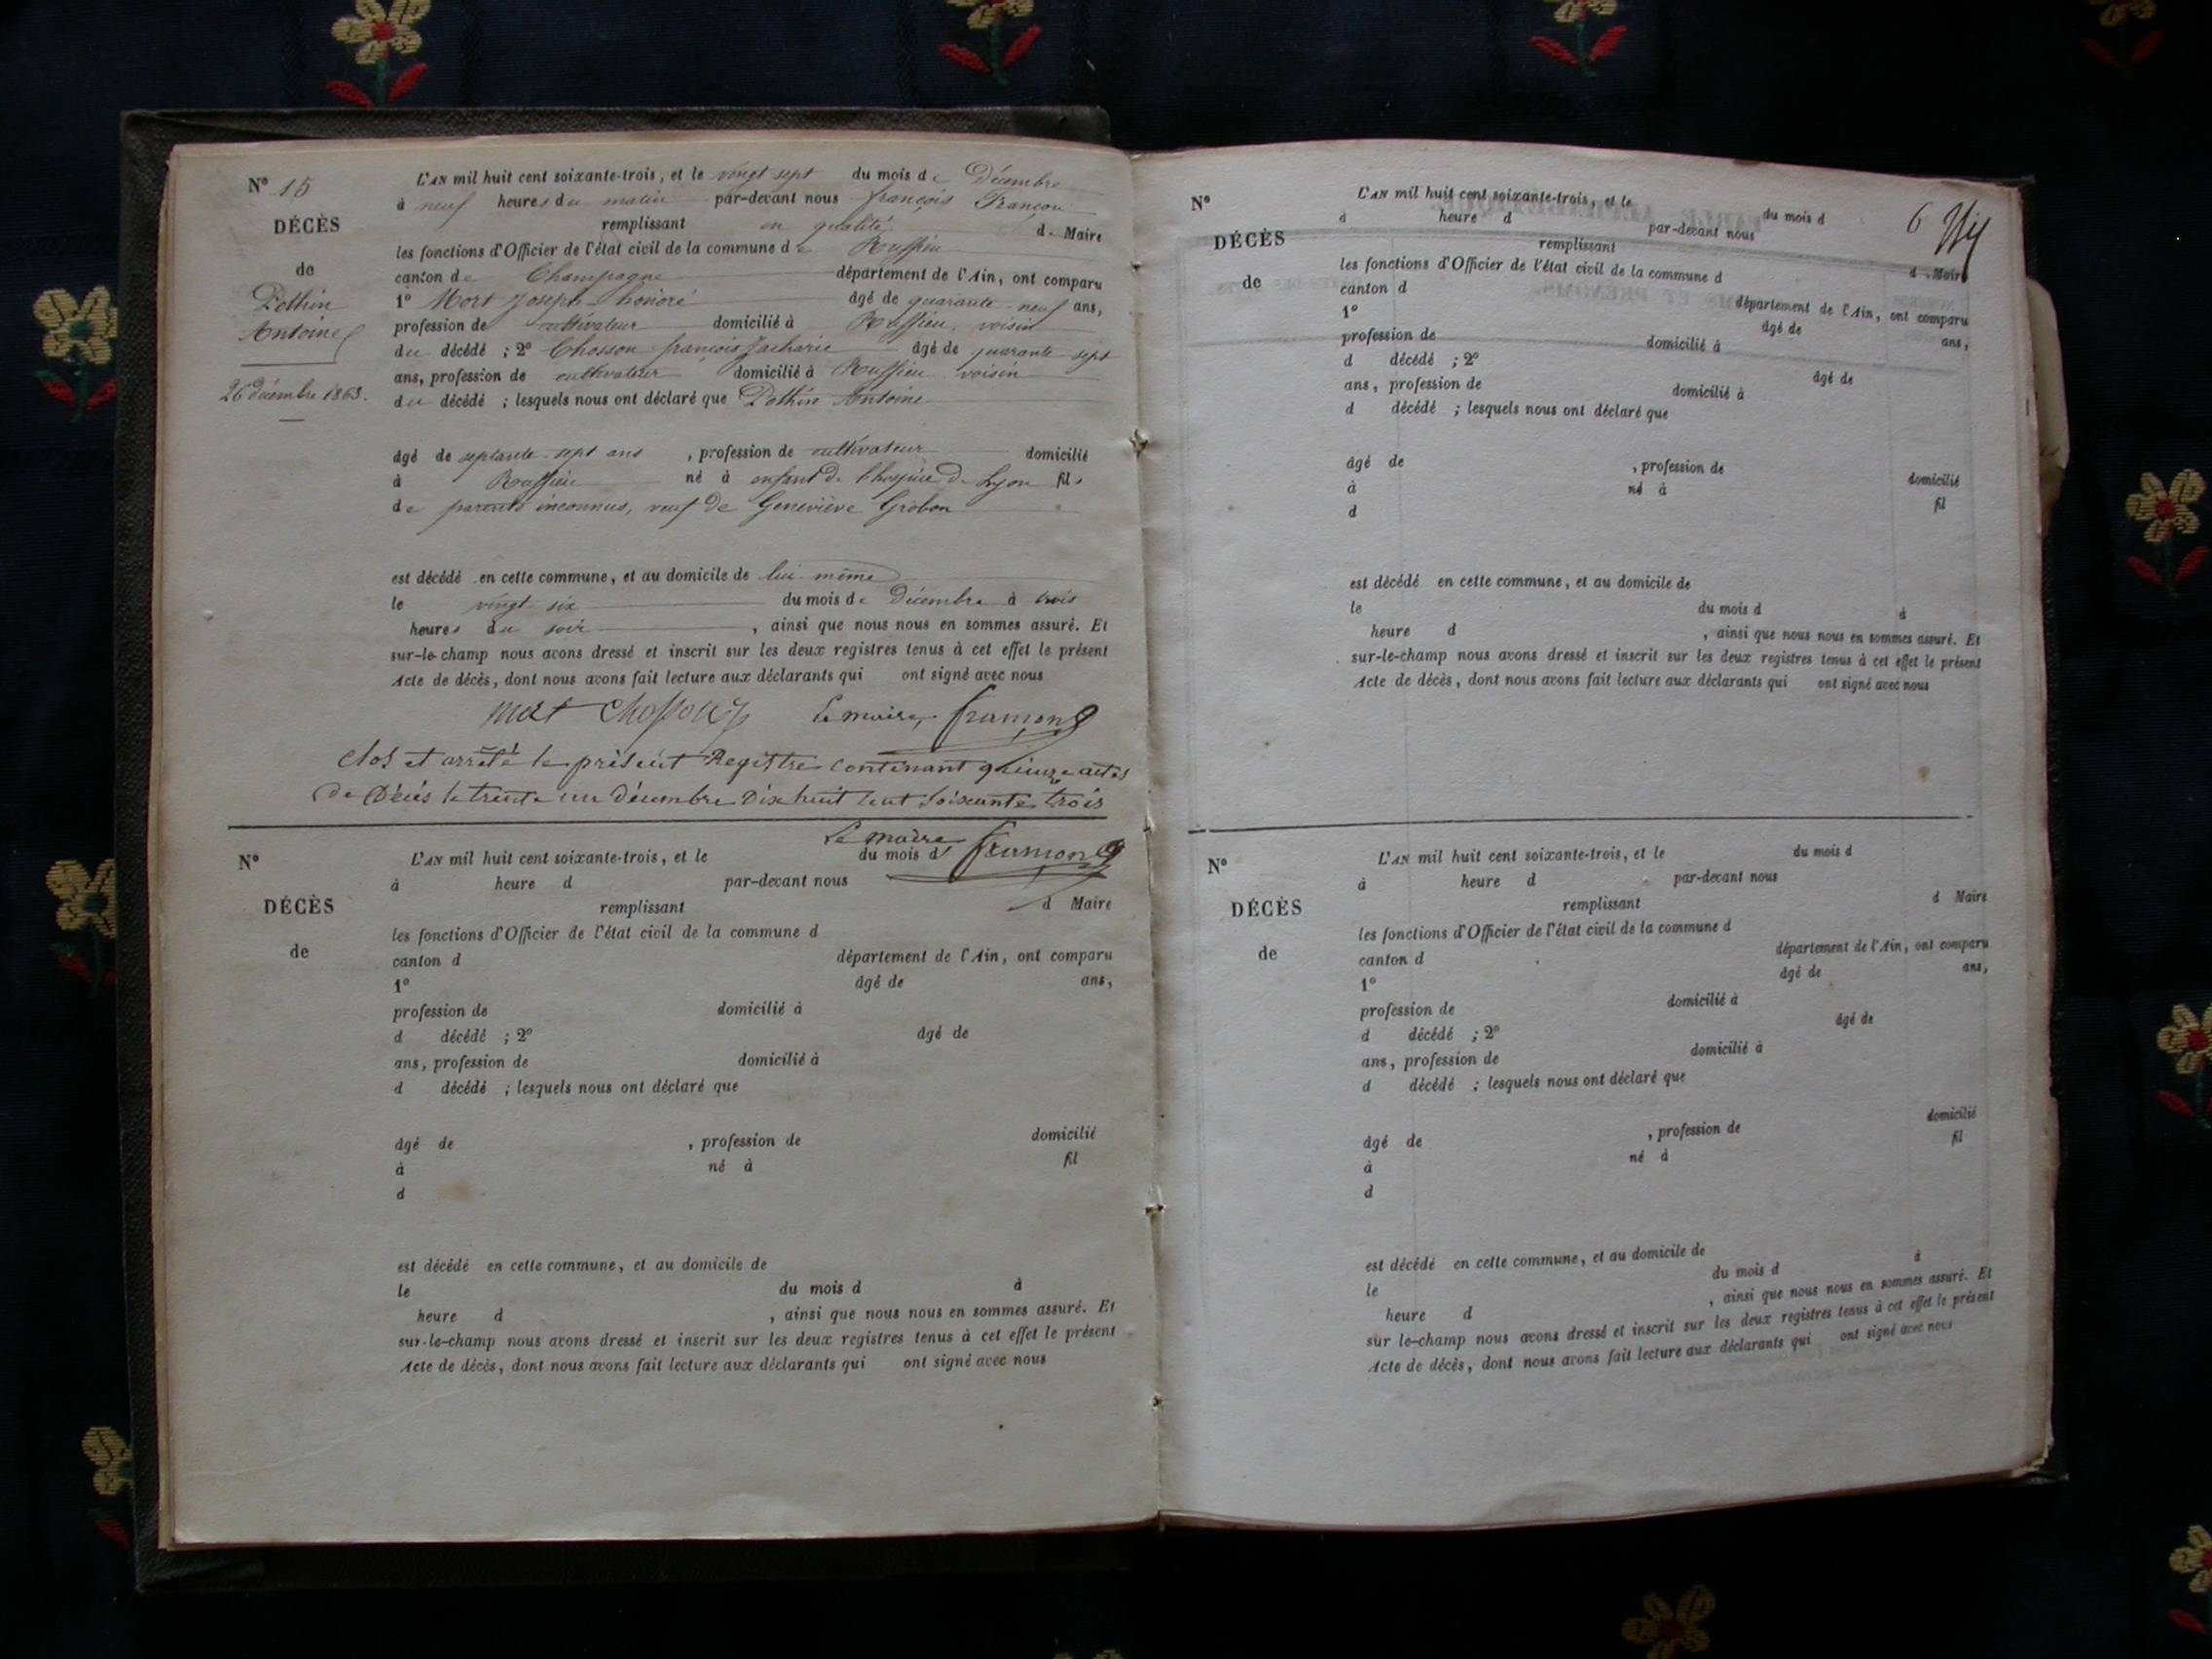 N° 15
DÉCÈS
de
Pothin
Antoine
26 décembre 1863.
L'AN mil huit cent soixante-trois, et le vingt sept du mois de Décembre
à neuf heures du matin par-devant nous françois
remplissant en qualité de Maire
les fonctions d'Officier de l'état civil de la commune de Ruffieu
canton de Champagne département de l'Ain, ont comparu
1° Mort Joseph honoré âgé de quarante-neuf ans,
profession de cultivateur domicilié à Ruffieu, voisin
du décédé ; 2° Chosson françois Zacharie âgé de quarante-sept
ans, profession de cultivateur domicilié à Ruffieu voisin
du décédé ; lesquels nous ont déclaré que Pothin Antoine
âgé de septante-sept ans , profession de cultivateur domicilié
à Ruffieu né à enfant de l'hospice de Lyon fils
de parents inconnus, veuf de Geneviève Grobon
est décédé en cette commune, et au domicile de lui-même
le vingt six du mois de Décembre à trois
heures du soir , ainsi que nous nous en sommes assuré. Et
sur-le-champ nous avons dressé et inscrit sur les deux registres tenus à cet effet le présent
Acte de décès, dont nous avons fait lecture aux déclarants qui ont signé avec nous
mort Chosson Le maire,
Clos et arrêté le présent Registre contenant quinze actes
de Décès le trente un Décembre Dix huit cent soixante trois
Le maire
N°
DÉCÈS
de
L'AN mil huit cent soixante-trois, et le du mois d
à heure d par-devant nous
remplissant d Maire
les fonctions d'Officier de l'état civil de la commune d
canton d département de l'Ain, ont comparu
1° âgé de ans,
profession de domicilié à
d décédé ; 2° âgé de
ans, profession de domicilié à
d décédé ; lesquels nous ont déclaré que
âgé de , profession de domicilié
à né à fil
d
est décédé en cette commune, et au domicile de
le du mois d à
heure d , ainsi que nous nous en sommes assuré. Et
sur-le-champ nous avons dressé et inscrit sur les deux registres tenus à cet effet le présent
Acte de décès, dont nous avons fait lecture aux déclarants qui ont signé avec nous
6
N°
DÉCÈS
de
L'AN mil huit cent soixante-trois, et le du mois d
à heure d par-devant nous
remplissant d Maire
les fonctions d'Officier de l'état civil de la commune d
canton d département de l'Ain, ont comparu
1° âgé de ans,
profession de domicilié à
d décédé ; 2° âgé de
ans, profession de domicilié à
d décédé ; lesquels nous ont déclaré que
âgé de , profession de domicilié
à né à fil
d
est décédé en cette commune, et au domicile de
le du mois d à
heure d , ainsi que nous nous en sommes assuré. Et
sur-le-champ nous avons dressé et inscrit sur les deux registres tenus à cet effet le présent
Acte de décès, dont nous avons fait lecture aux déclarants qui ont signé avec nous
N°
DÉCÈS
de
L'AN mil huit cent soixante-trois, et le du mois d
à heure d par-devant nous
remplissant d Maire
les fonctions d'Officier de l'état civil de la commune d
canton d département de l'Ain, ont comparu
1° âgé de ans,
profession de domicilié à
d décédé ; 2° âgé de
ans, profession de domicilié à
d décédé ; lesquels nous ont déclaré que
âgé de , profession de domicilié
à né à fil
d
est décédé en cette commune, et au domicile de
le du mois d à
heure d , ainsi que nous nous en sommes assuré. Et
sur le-champ nous avons dressé et inscrit sur les deux registres tenus à cet effet le présent
Acte de décès, dont nous avons fait lecture aux déclarants qui ont signé avec nous